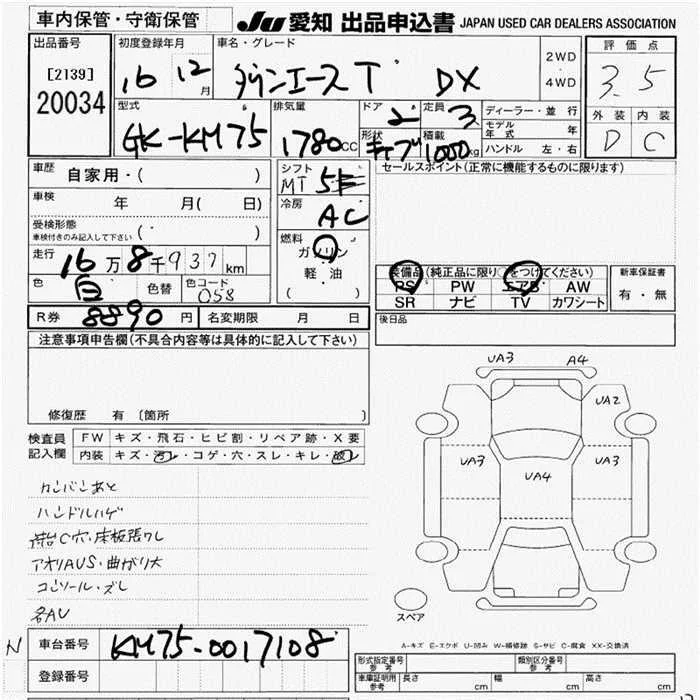 車内保管・守衛保管
JU 愛知 出品申込書 JAPAN USED CAR DEALERS ASSOCIATION
出品番号
[2139]
20034
初度登録年月
16 12月
車名・グレード
タウンエースT DX
2WD
・
4WD
評価点
3.5
外装 内装
D C
型式
GK-KM75
排気量
1780CC
ドア
2
定員
3人
形状
積載
1000kg
ディーラー・並行
モデル年式 年
ハンドル 左・右
車歴 自家用・( )
車検 年 月( 日)
受検形態
車検付きのみ記入して下さい ( )
走行 16万8千937km
色 白 色替 色コード 058
シフト
MT 5
冷房
AC
燃料
ガソリン
・
軽・油
( )
セールスポイント(正常に機能するものに限ります)
装備品(純正品に限り○をつけてください)
PS PW エアB AW
SR ナビ TV カワシート
新車保証書
有・無
後日品
R券 8890円 名変期限 月 日
注意事項申告欄(不具合内容等は具体的に記入して下さい)
修復歴 有 〔箇所 〕
検査員記入欄
FW キズ・飛石・ヒビ割・リペア跡・X要
内装 キズ・汚レ・コゲ・穴・スレ・キレ・破レ
カンバンあと
ハンドルハゲ
C穴・床板張りし
アオリAUS・曲がり大
コンソール・ズレ
各AU
UA3 A4
UA2
UA3 UA4 UA3
スペア
A-キズ E-エクボ U-凹み W-補修跡 S-サビ C-腐食 XX-交換済
N 車台番号 KM75-0017108
登録番号
形式指定番号参考 類別区分番号参考
車庫証明用参考 長さ cm 幅 cm 高さ cm